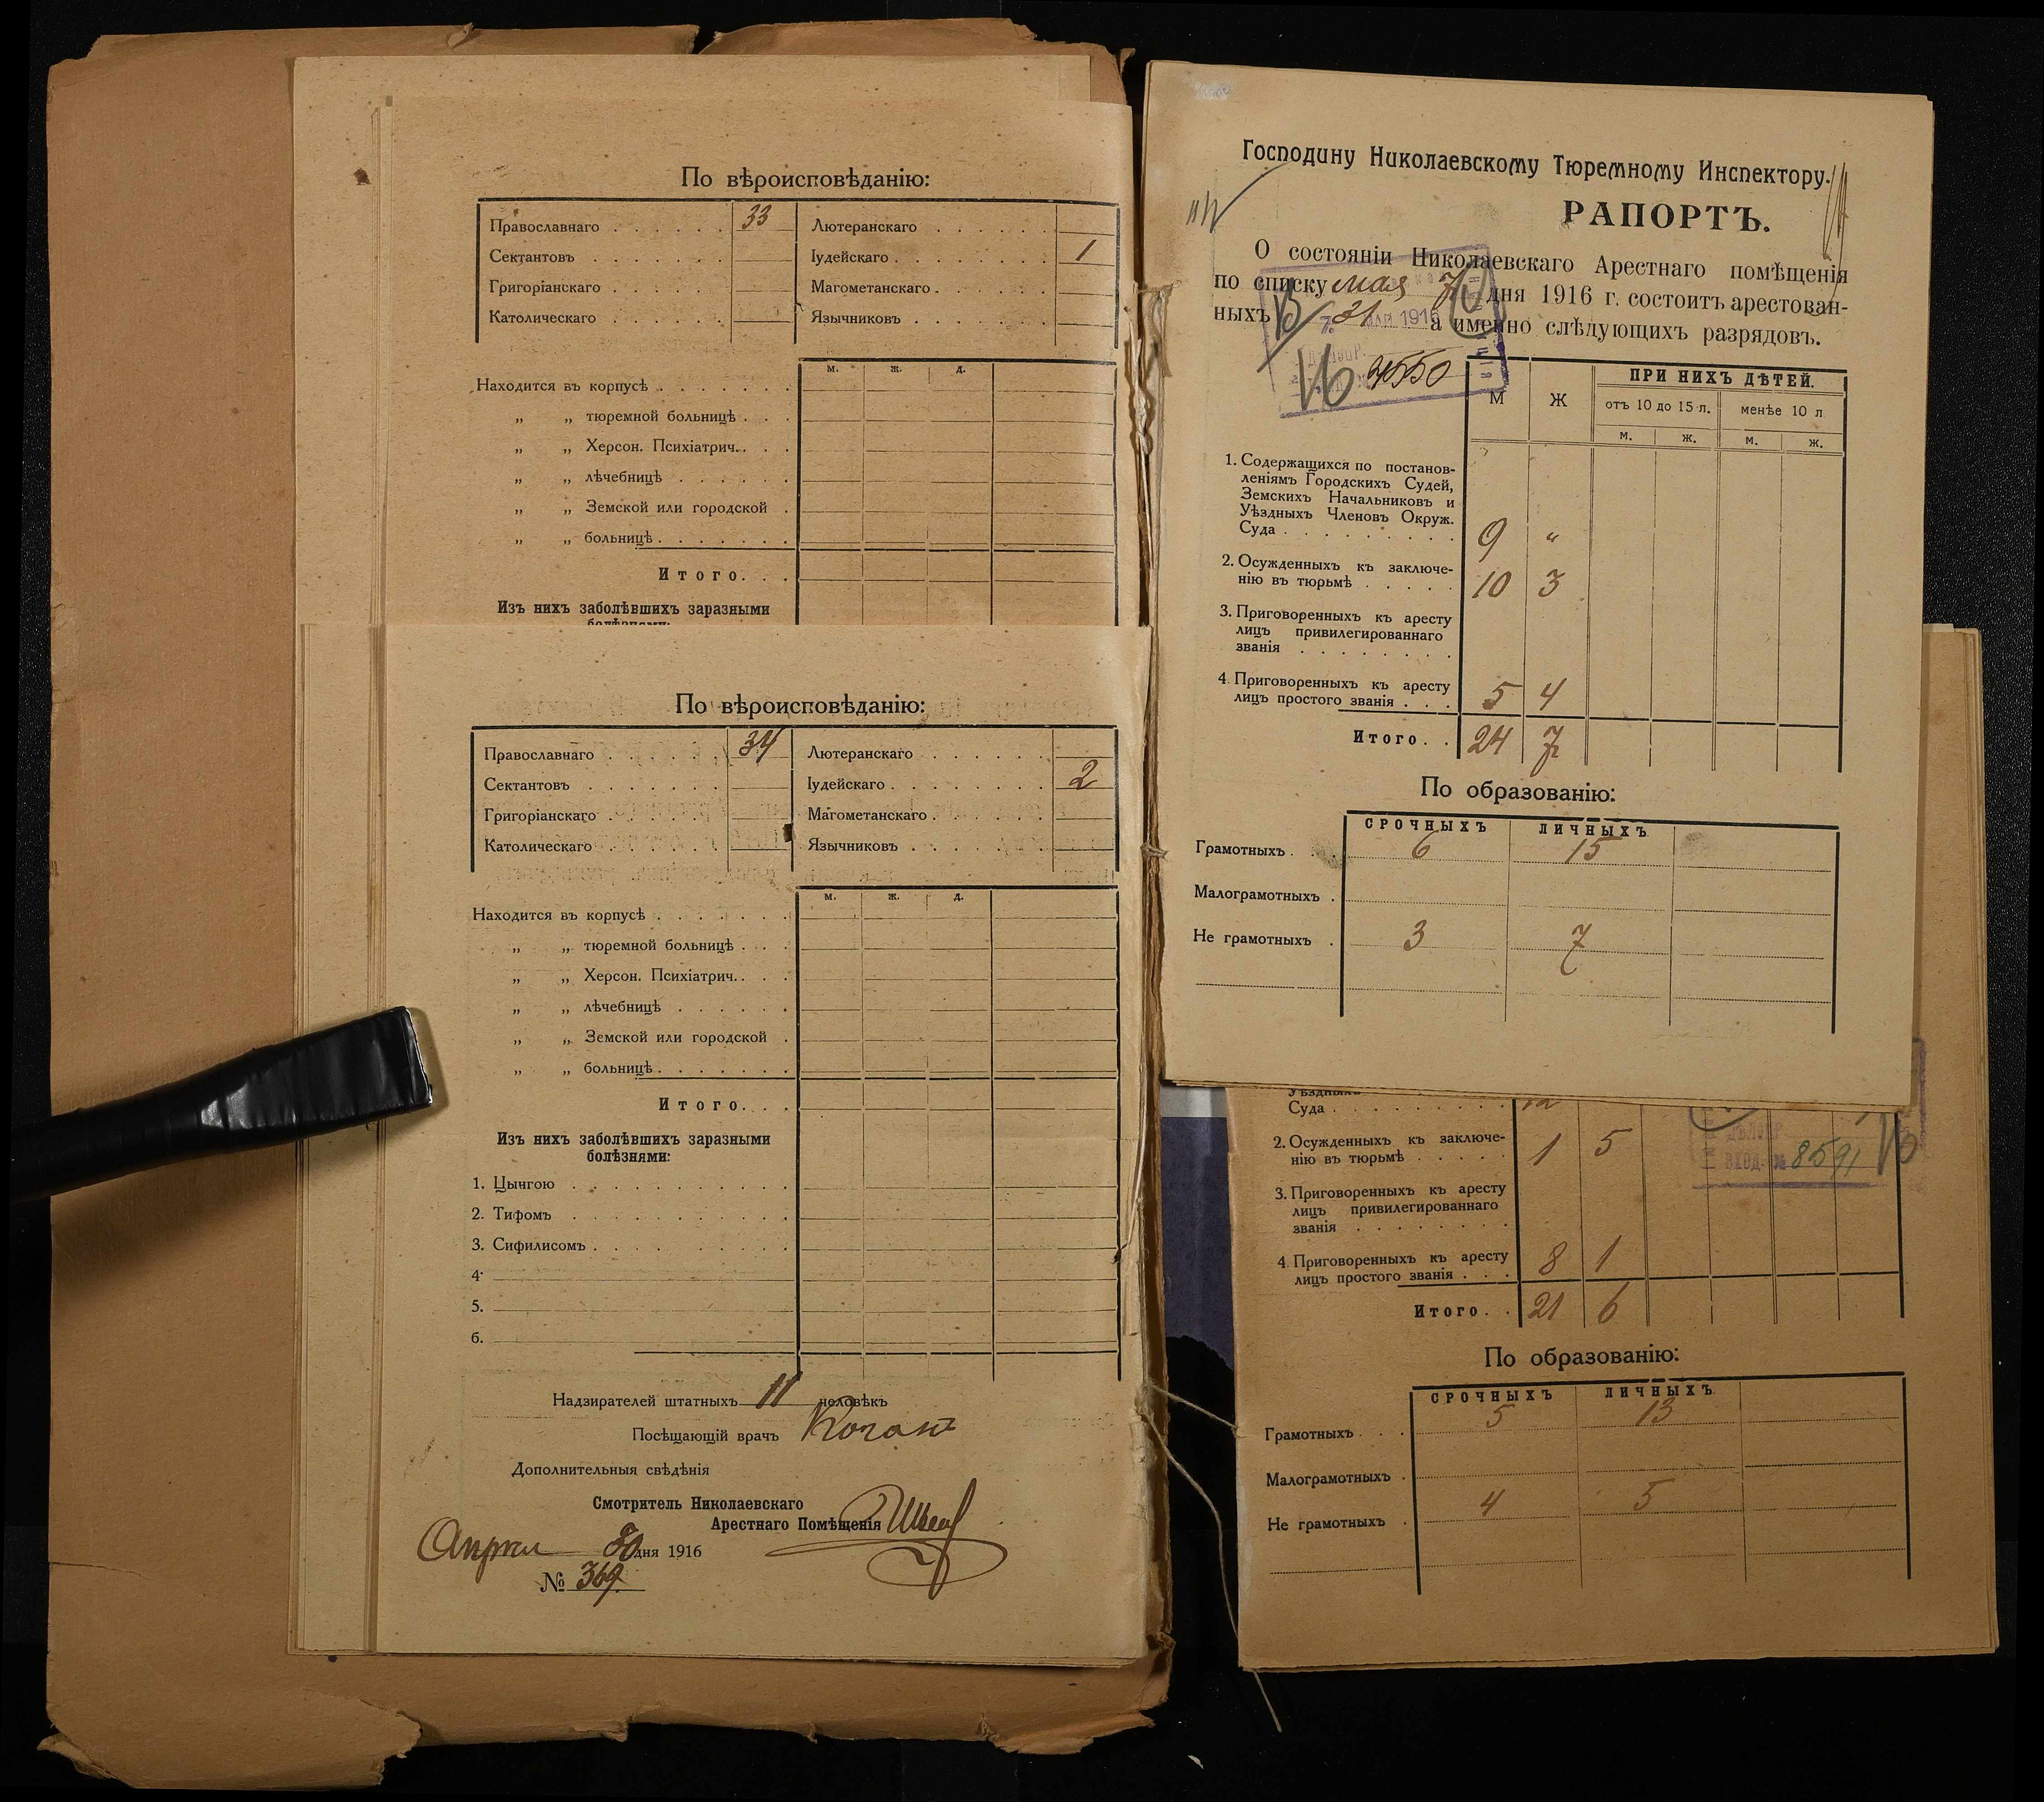 По вѣроисповѣданію:
Православнаго . . . . . . 33 Лютеранскаго . . . . . .
Сектантовъ . . . . . . . Іудейскаго . . . . . . . . 1
Григоріанскаго . . . . . Магометанскаго . . . . .
Католическаго . . . . . . Язычниковъ . . . . . . .
м. ж. д.
Находится въ корпусѣ . . . . . . .
„ „ тюремной больницѣ . . .
„ „ Херсон. Психіатрич. . . .
„ „ лѣчебницѣ . . . . . .
„ „ Земской или городской .
„ „ больницѣ . . . . . . .
Итого. . .
Изъ нихъ заболѣвшихъ заразными
болѣзнями:
По вѣроисповѣданію:
Православнаго . . . . . . 34 Лютеранскаго . . . . . .
Сектантовъ . . . . . . . Іудейскаго . . . . . . . . 2
Григоріанскаго . . . . . Магометанскаго . . . . .
Католическаго . . . . . . Язычниковъ . . . . . . .
м. ж. д.
Находится въ корпусѣ . . . . . . .
„ „ тюремной больницѣ . . .
„ „ Херсон. Психіатрич. . . .
„ „ лѣчебницѣ . . . . . .
„ „ Земской или городской .
„ „ больницѣ . . . . . . .
Итого. . .
Изъ нихъ заболѣвшихъ заразными
болѣзнями:
1. Цынгою . . . . . . . . . . .
2. Тифомъ . . . . . . . . . . .
3. Сифилисомъ . . . . . . . . .
4.
5.
6.
Надзирателей штатныхъ 11 человѣкъ
Посѣщающій врачъ Коганъ
Дополнительныя свѣдѣнія
Смотритель Николаевскаго
Арестнаго Помѣщенія
дня 1916
№ 369.
Господину Николаевскому Тюремному Инспектору.
РАПОРТЪ.
О состояніи Николаевскаго Арестнаго помѣщенія
по списку мая 7 дня 1916 г. состоитъ арестован-
ныхъ 31 а именно слѣдующихъ разрядовъ.
4550
М Ж ПРИ НИХЪ ДѢТЕЙ.
отъ 10 до 15 л. менѣе 10 л
м. ж. м. ж.
1. Содержащихся по постанов-
леніямъ Городскихъ Судей,
Земскихъ Начальниковъ и
Уѣздныхъ Членовъ Окруж.
Суда . . . . . . . . . 9 „
2. Осужденныхъ къ заключе-
нію въ тюрьмѣ . . . . . 10 3
3. Приговоренныхъ къ аресту
лицъ привилегированнаго
званія . . . . . . . .
4. Приговоренныхъ къ аресту
лицъ простого званія . . . 5 4
Итого. . 24 7
По образованію:
СРОЧНЫХЪ ЛИЧНЫХЪ
Грамотныхъ . . . 6 15
Малограмотныхъ .
Не грамотныхъ . 3 7
Уѣздныхъ
Суда . . . . . . . . . 12
2. Осужденныхъ къ заключе-
нію въ тюрьмѣ . . . . . 1 5
ВХОД. № 8591
3. Приговоренныхъ къ аресту
лицъ привилегированнаго
званія . . . . . . . .
4. Приговоренныхъ къ аресту
лицъ простого званія . . . 8 1
Итого. . 21 6
По образованію:
СРОЧНЫХЪ ЛИЧНЫХЪ
Грамотныхъ . . . 5 13
Малограмотныхъ .
Не грамотныхъ . 4 5